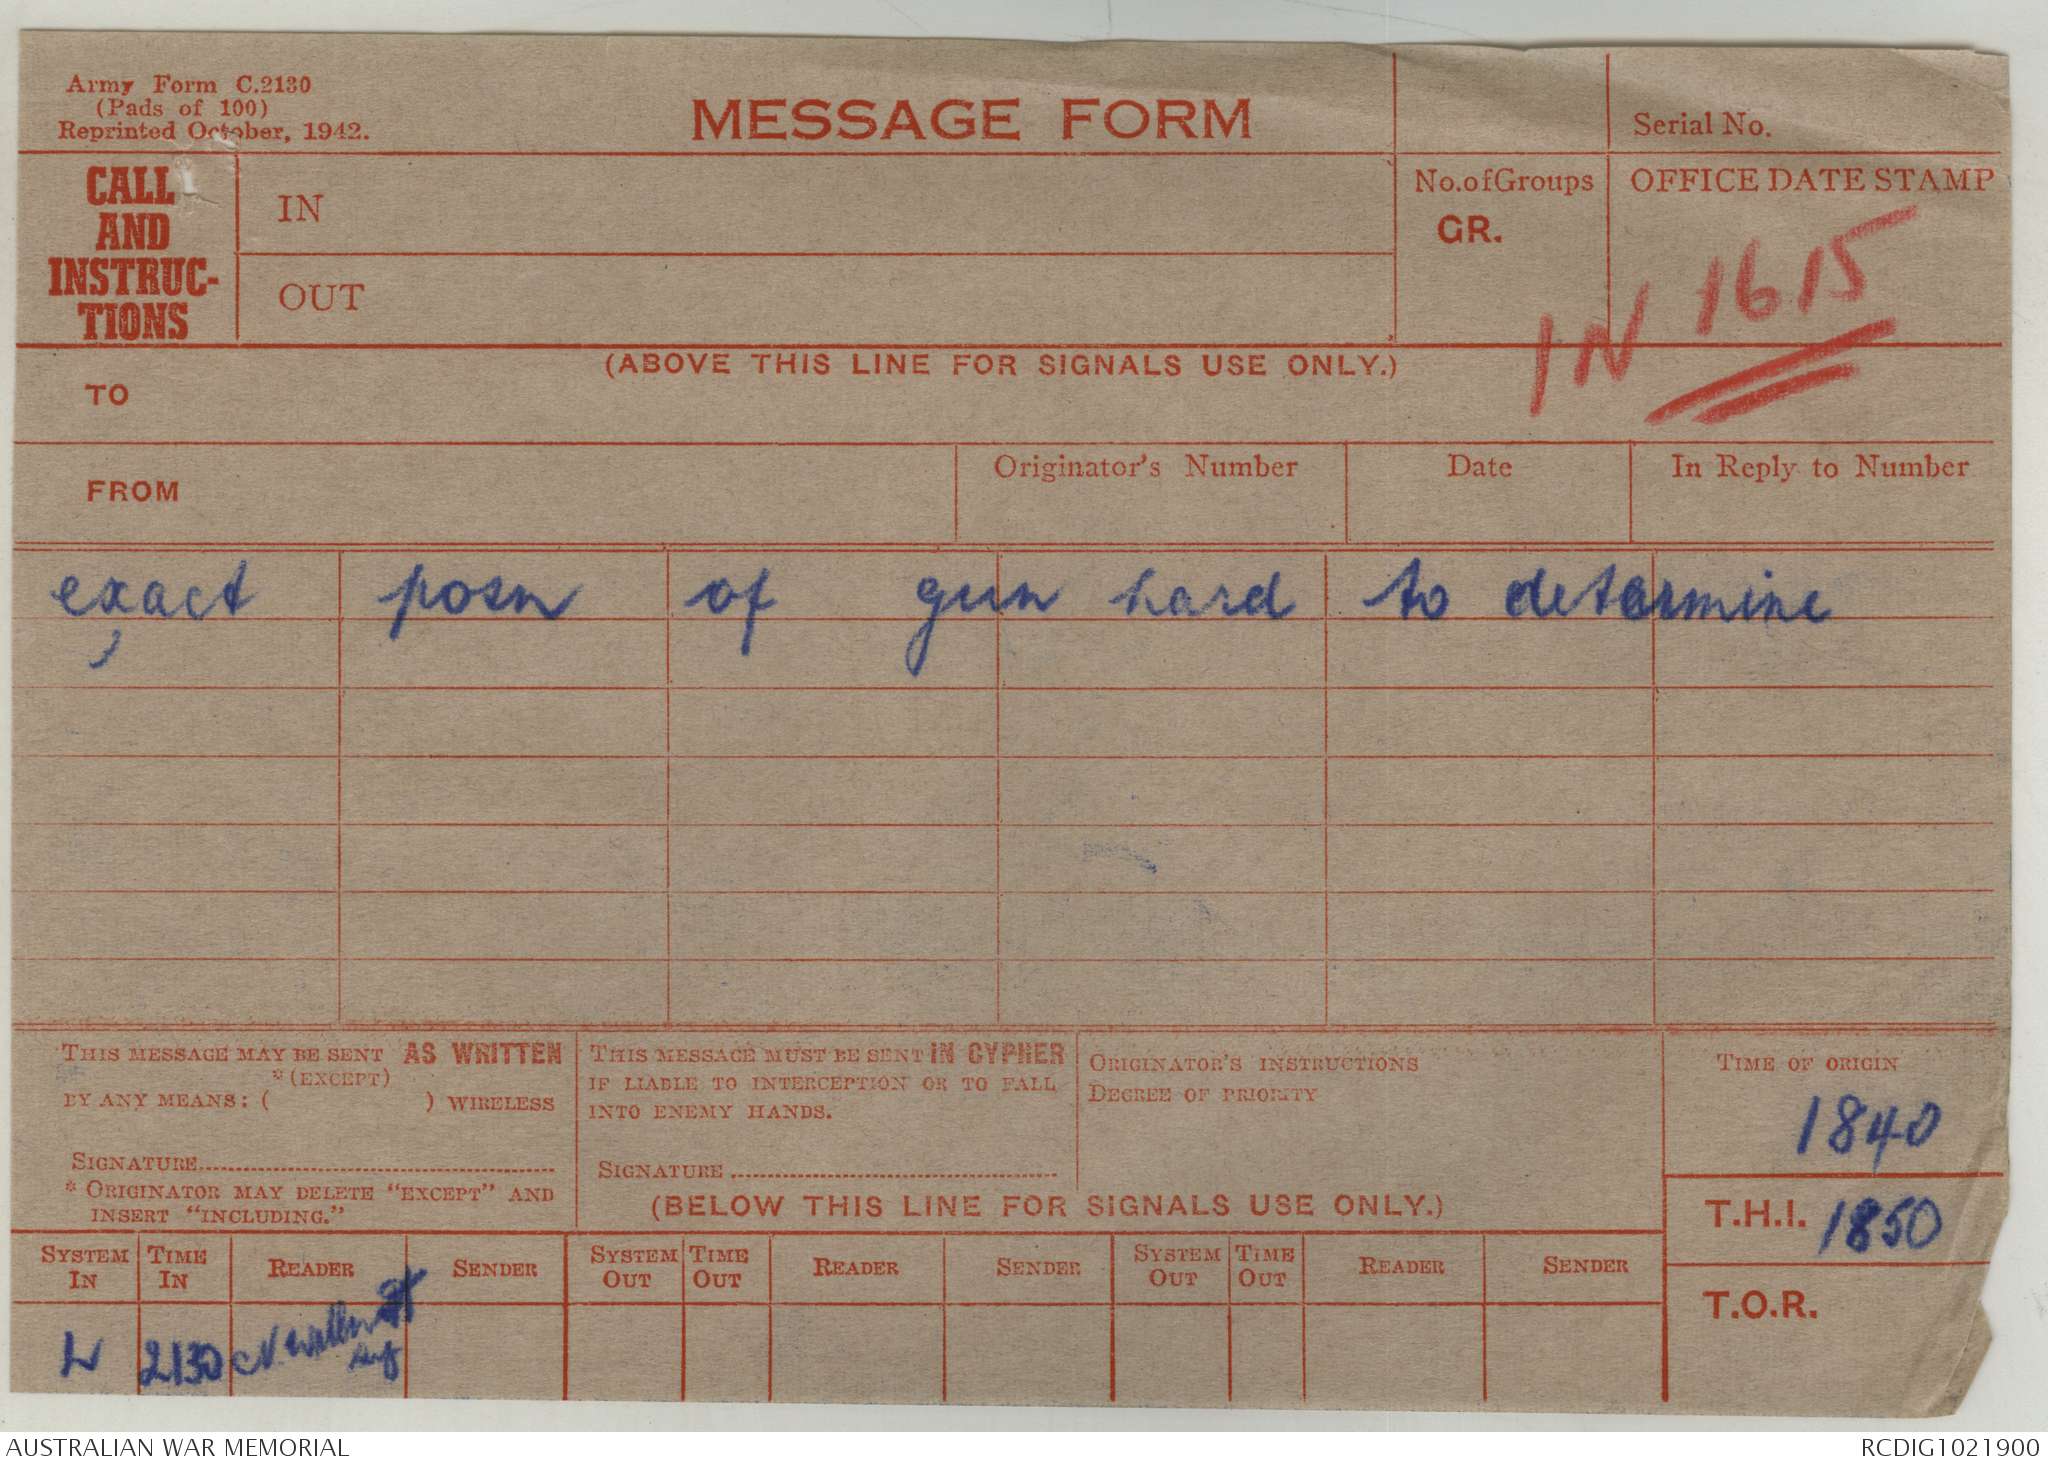 Army Form C.2130
(Pads of 100)
Reprinted October, 1942.
MESSAGE FORM
Serial No.
CALL
AND
INSTRUC-
TIONS
IN
OUT
No. of Groups
GR.
OFFICE DATE STAMP
IN 1615
(ABOVE THIS LINE FOR SIGNALS USE ONLY.)
TO
FROM
Originator's Number
Date
In Reply to Number
exact posn of gun hard to determine
THIS MESSAGE MAY BE SENT AS WRITTEN
*(EXCEPT)
BY ANY MEANS: ( ) WIRELESS
SIGNATURE
* ORIGINATOR MAY DELETE "EXCEPT" AND
INSERT "INCLUDING."
THIS MESSAGE MUST BE SENT IN CYPHER
IF LIABLE TO INTERCEPTION OR TO FALL
INTO ENEMY HANDS.
SIGNATURE
ORIGINATOR'S INSTRUCTIONS
DEGREE OF PRIORITY
TIME OF ORIGIN
1840
T.H.I. 1850
T.O.R.
(BELOW THIS LINE FOR SIGNALS USE ONLY.)
SYSTEM IN TIME IN READER SENDER SYSTEM OUT TIME OUT READER SENDER SYSTEM OUT TIME OUT READER SENDER
2130
AUSTRALIAN WAR MEMORIAL
RCDIG1021900